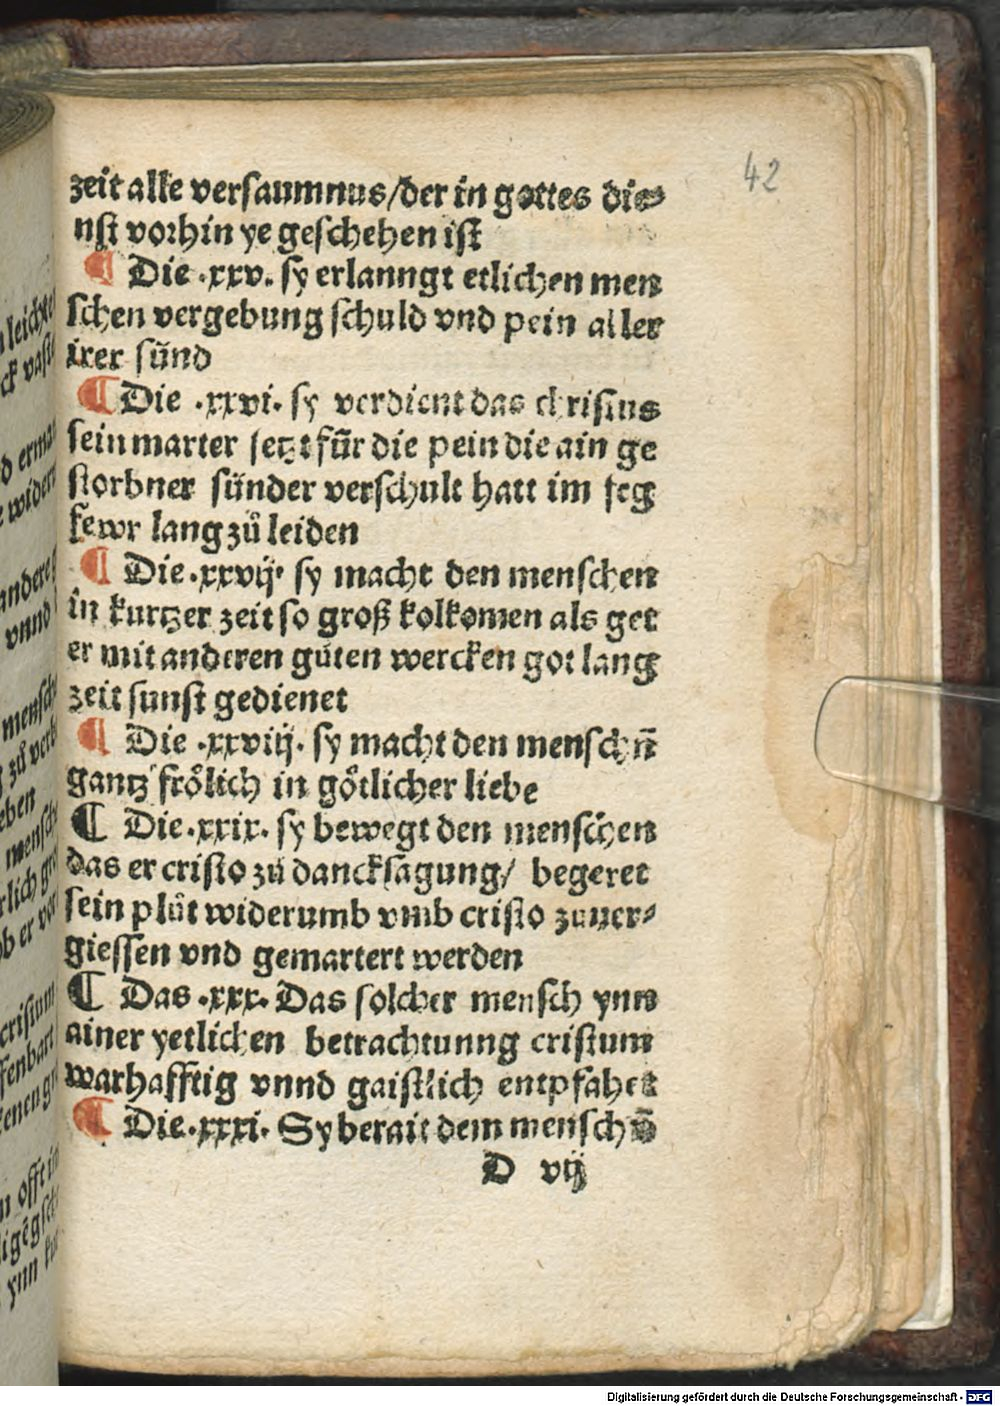 42
zeit alle versaumnus/der in gottes die⸗
nst vorhin ye geschehen ist
¶ Die .xxv. sy erlanngt etlichen men
schen vergebung schuld vnd pein aller
irer sünd
¶ Die .xxvi. sy verdient das christus
sein marter jetzt für die pein die ain ge
storbner sünder verschult hatt im feg
fewr lang zů leiden
¶ Die .xxvij. sy macht den menschen
in kurtzer zeit so groß kolkomen als het
er mit anderen gůten wercken got lang
zeit sunst gedienet
¶ Die .xxviij. sy macht den menschn̄
gantz frölich in götlicher liebe
¶ Die .xxix. sy bewegt den menschen
das er cristo zů dancksagung/ begeret
sein plůt widerumb vmb cristo zuuer⸗
giessen vnd gemartert werden
¶ Das .xxx. Das solcher mensch ynn
ainer yetlichen betrachtunng cristum
warhafftig vnnd gaistlich entpfahet
¶ Die .xxxi. Sy berait dem mensch
D vij
n leichte
ck vast
d erma
e wider
andere
vnnd
mensch
zů verb
eben
mensch
rlich gro
ob er ver
cristum
fenbart
enen gr
n offt in
ynn
Digitalisierung gefördert durch die Deutsche Forschungsgemeinschaft - DFG